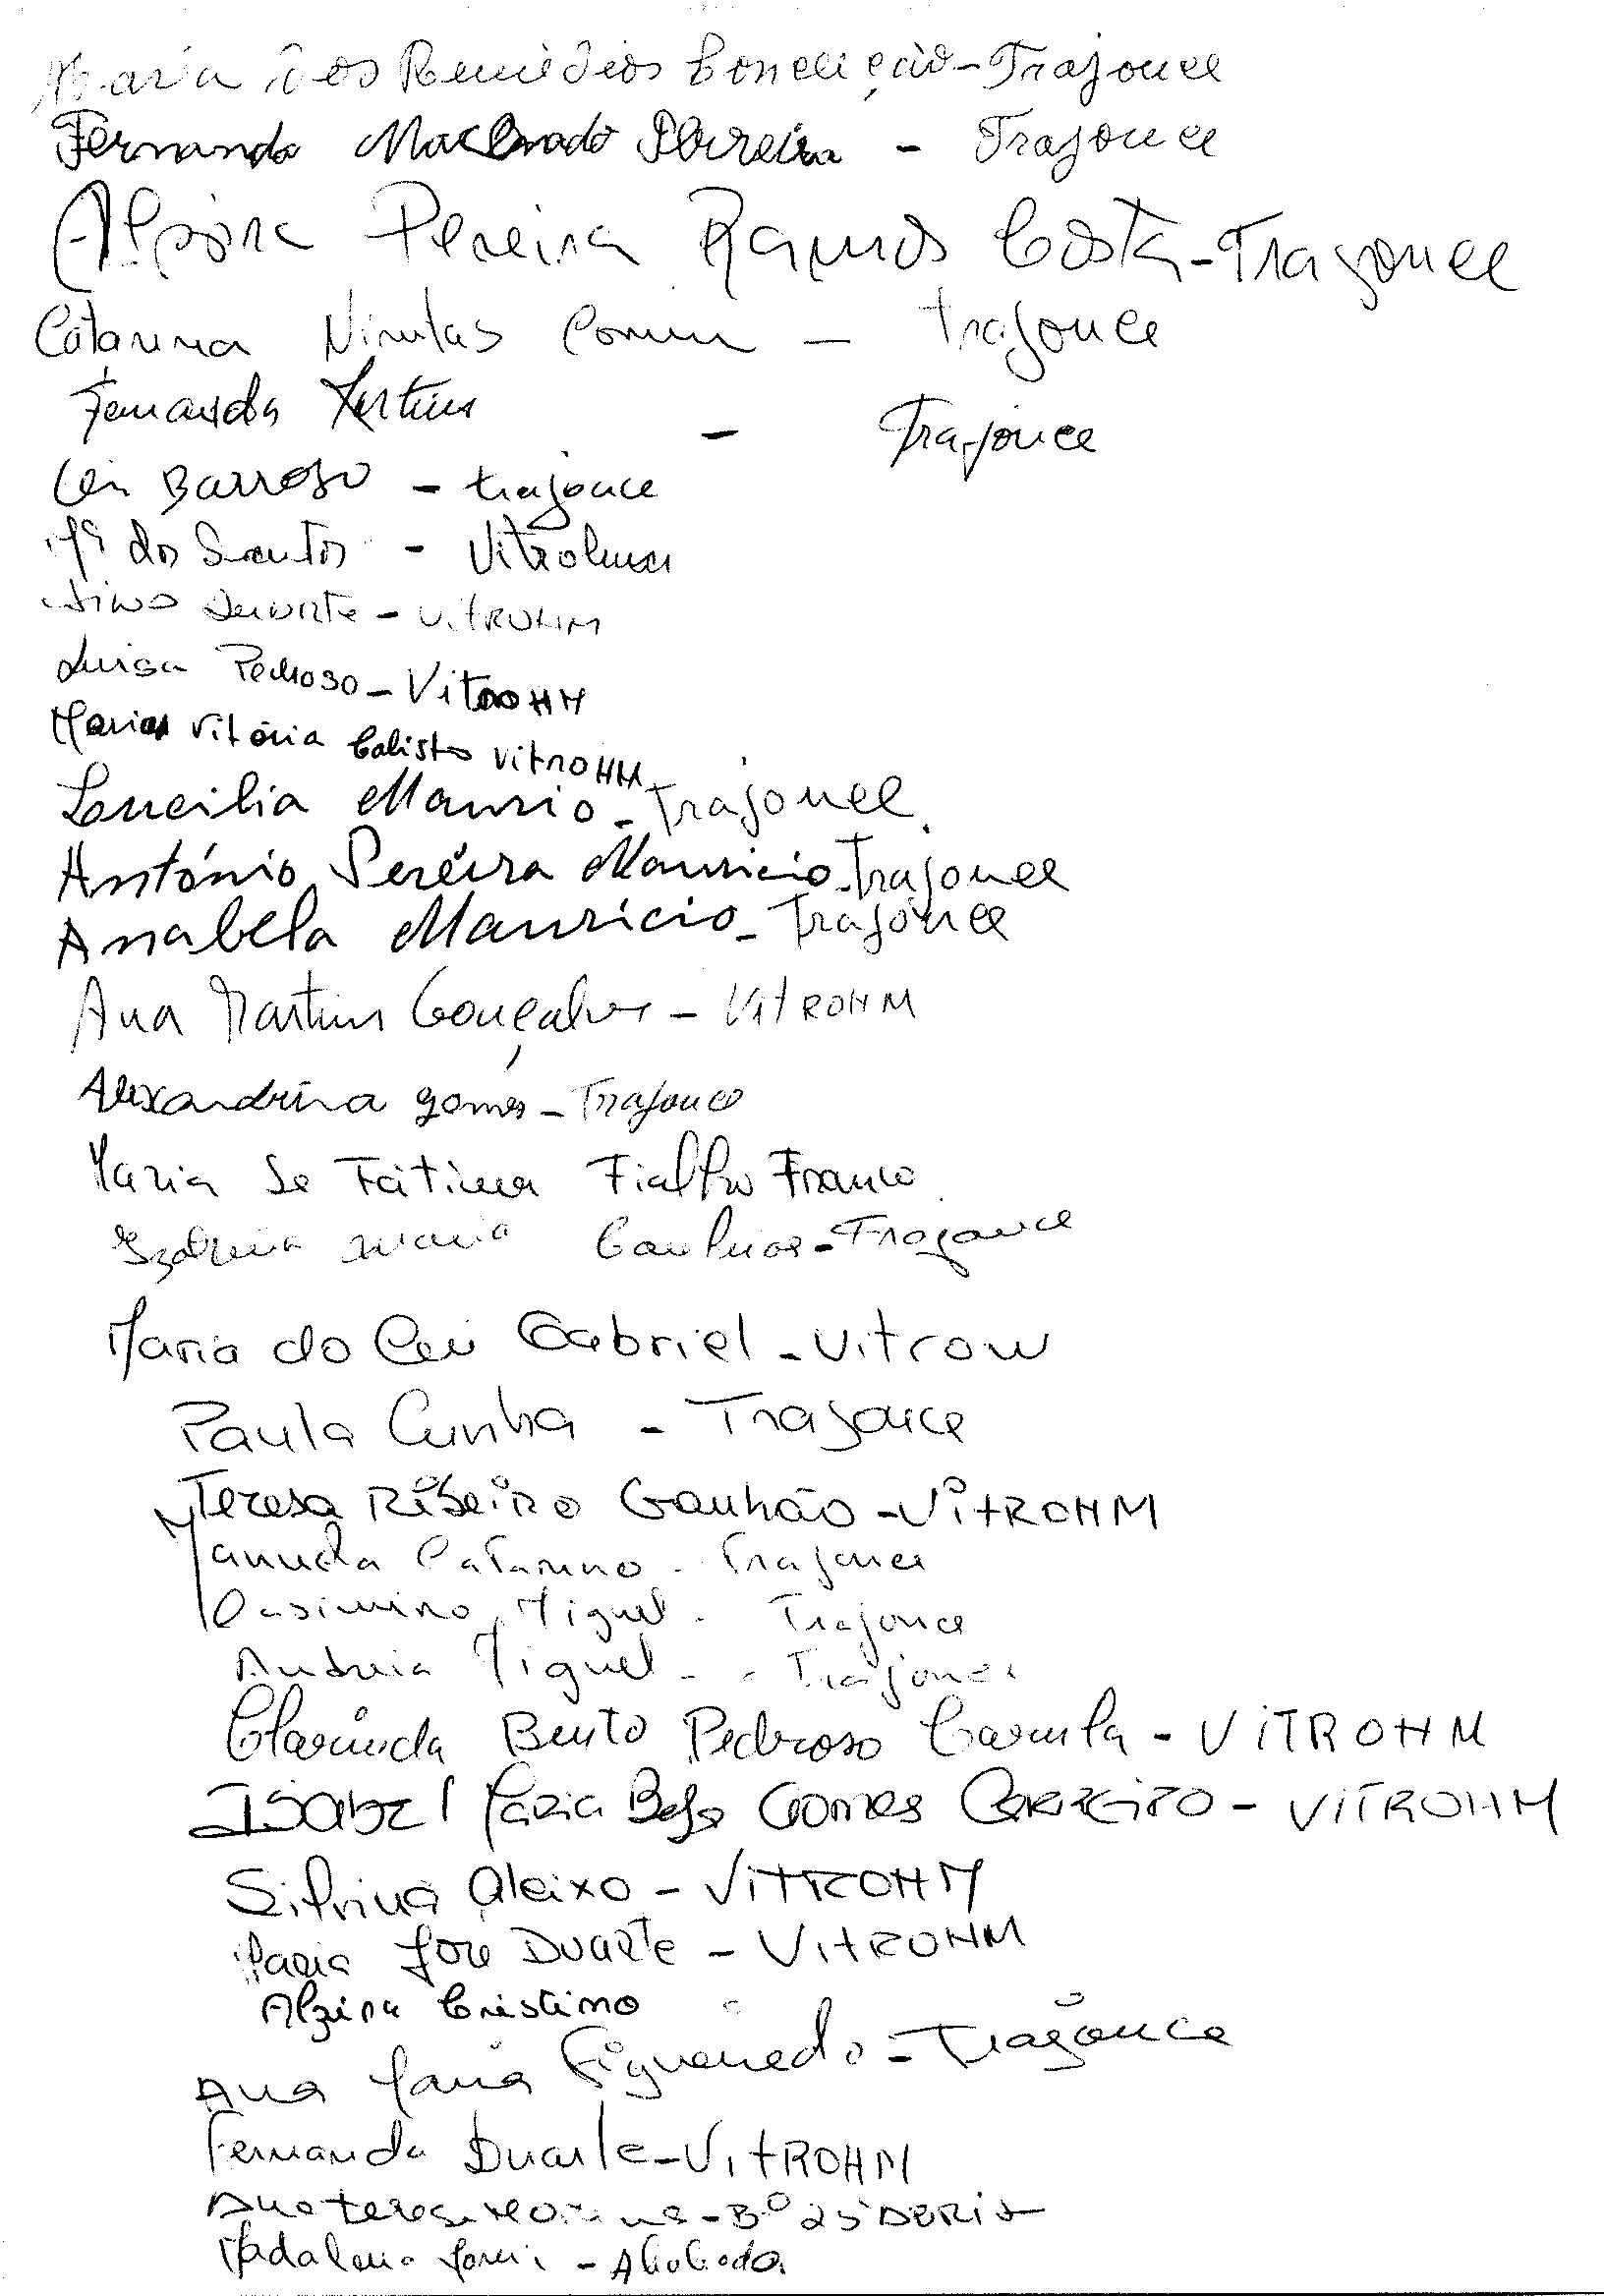 Maria dos Remédios Conceição - Trajouce
Fernanda Machado Pereira - Trajouce
Alzira Pereira Ramos Costa - Trajouce
Catarina - Trajouce
Fernanda Martins - Trajouce
Barroso - trajouce
Mª dos Santos - Vitrohm
Duarte - VITROHM
Luisa Pedroso - VitroHM
Maria Vitória Calisto VitroHM
Lucilia - Trajouce
António Pereira Mauricio - Trajouce
Anabela Mauricio - Trajouce
Ana Martins Gonçalves - VitROHM
Alexandrina gomes - Trajouce
Maria de Fátima Fialho Franco
Maria - Trajouce
Maria do Céu Gabriel - Vitrow
Paula Cunha - Trajouce
Teresa Ribeiro Ganhão - VitROHM
Manuela Catarino - Trajouce
Casimiro Miguel - Trajouce
Andreia Miguel - Trajouce
Clarinda Bento Pedroso - VITROHM
Isabel Maria Gomes Carreiro - VITROHM
Silvina Aleixo - VITROHM
Maria José Duarte - VITROHM
Alzira Cristino
Ana Maria Figueiredo - Trajouce
Fernanda Duarte - VITROHM
Ana teresa - Bº 25 ABRIL
Madalena - Abóboda